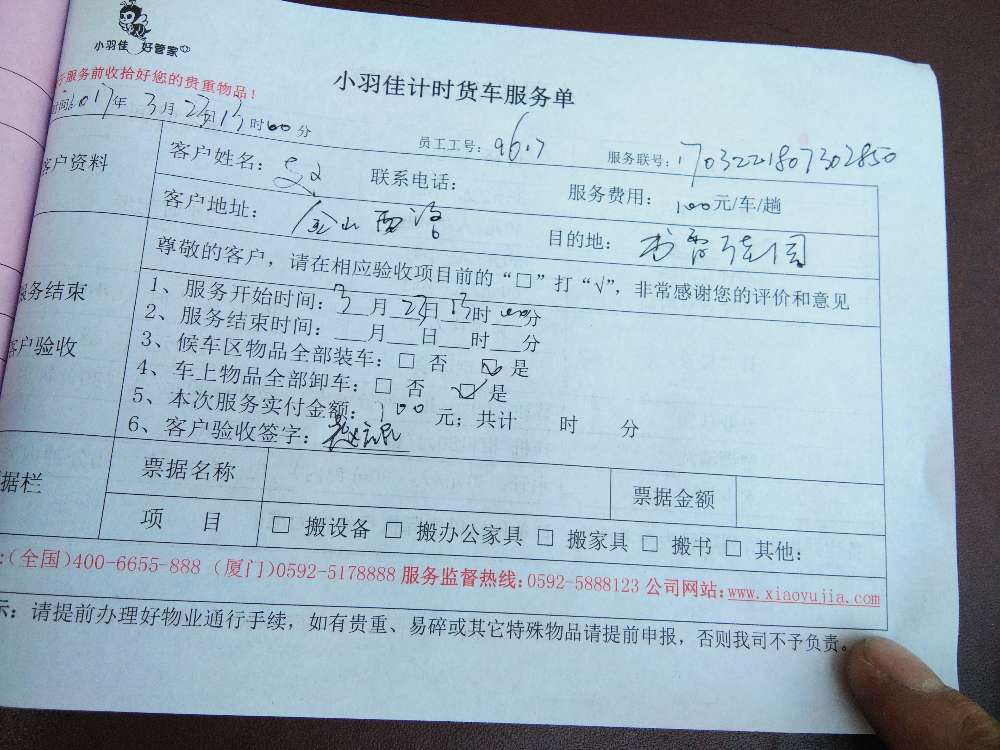 小羽佳 好管家
于服务前收拾好您的贵重物品！
小羽佳计时货车服务单
时间:2017年3月23日15时00分
员工工号: 9617 服务联号: 1703221807302850
客户资料 客户姓名: 联系电话: 服务费用: 100元/车/趟
客户地址: 金山西路 目的地: 佳园
服务结束
客户验收
尊敬的客户，请在相应验收项目前的“□”打“√”，非常感谢您的评价和意见
1、服务开始时间: 3月23日15时00分
2、服务结束时间:___月___日___时___分
3、候车区物品全部装车: □ 否 ☑ 是
4、车上物品全部卸车: □ 否 ☑ 是
5、本次服务实付金额: 100 元; 共计 时 分
6、客户验收签字:
据栏 票据名称 票据金额
项 目 □ 搬设备 □ 搬办公家具 □ 搬家具 □ 搬书 □ 其他:
:(全国)400-6655-888 (厦门)0592-5178888 服务监督热线:0592-5888123 公司网站:www.xiaoyujia.com
示: 请提前办理好物业通行手续，如有贵重、易碎或其它特殊物品请提前申报，否则我司不予负责。